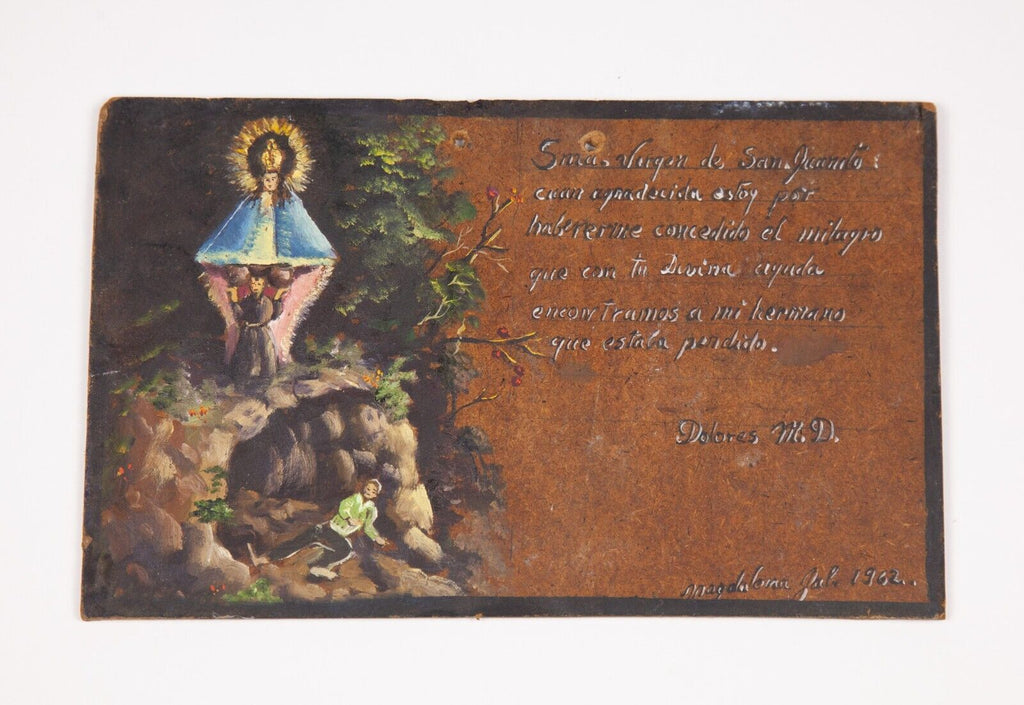 Sma. Virgen de San Juanito:
cuan agradecida estoy por
habererme concedido el milagro
que con tu Divina ayuda
encontramos a mi hermano
que estaba perdido.
Dolores M.D.
Magdalena Jal. 1902.